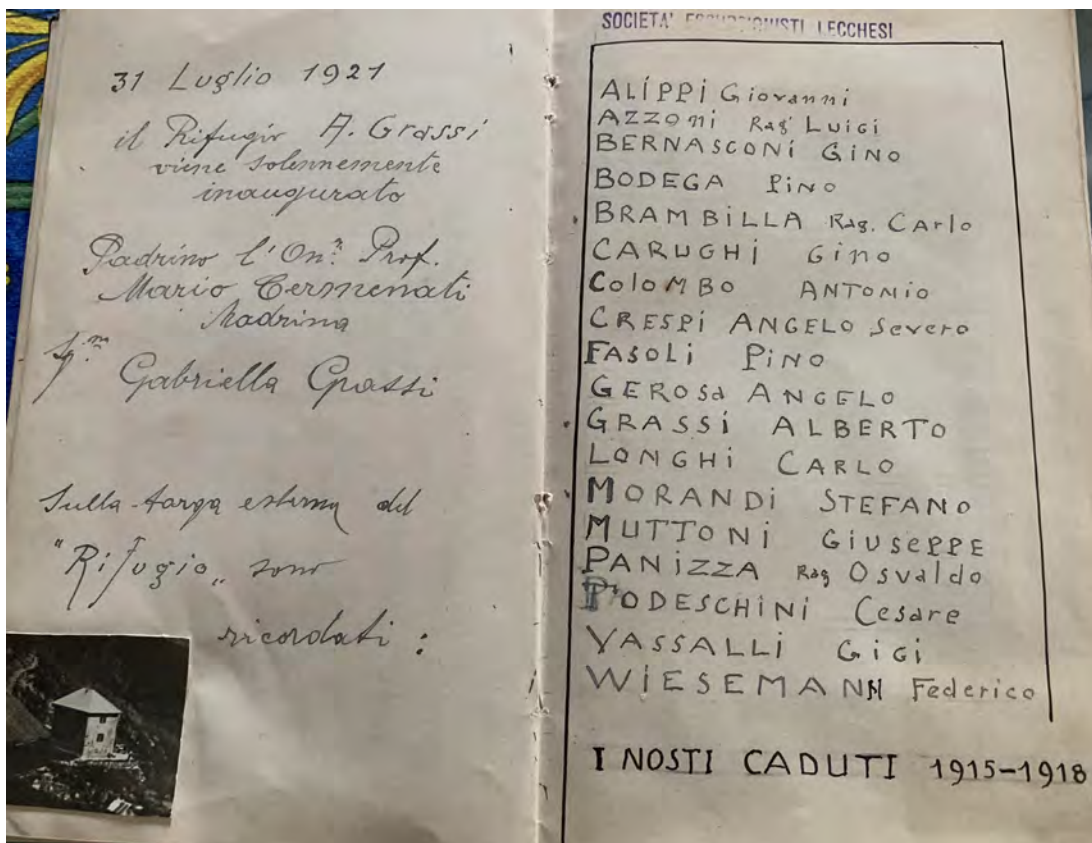 31 Luglio 1921
il Rifugio A. Grassi
viene solennemente
inaugurato
Padrino l'On. Prof.
Mario Cermenati
Madrina
Gabriella Grassi
Sulla targa esterna del
"Rifugio" sono
ricordati :
SOCIETA' ESCURSIONISTI LECCHESI
ALIPPI Giovanni
AZZONI Rag. LUIGI
BERNASCONI GINO
BODEGA PINO
BRAMBILLA Rag. Carlo
CARUGHI Gino
COLOMBO ANTONIO
CRESPI ANGELO Severo
FASOLI PINO
GEROSA ANGELO
GRASSI ALBERTO
LONGHI CARLO
MORANDI STEFANO
MUTTONI GIUSEPPE
PANIZZA Rag Osvaldo
PODESCHINI Cesare
VASSALLI GIGI
WIESEMANN Federico
I NOSTI CADUTI 1915-1918